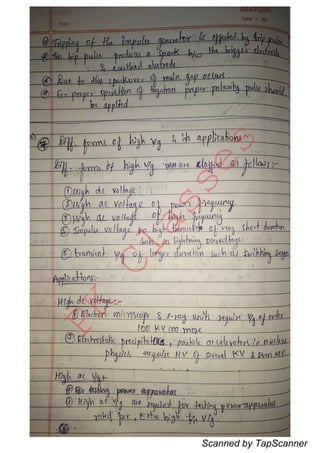 Page:
Date: / /
Tripping of the impulse generator is effected by trip pulse
The trip pulse produces a spark b/w the trigger electrode
& earthed electrode.
Due to this sparkover of main gap occurs.
For proper operation of trigatron proper polarity pulse should
be applied.
Diff. forms of high v/g & its applications:-
Diff. forms of high v/g are classified as follows:-
① High dc voltage
② High ac voltage of power frequency
③ High ac voltage of high frequency
④ Impulse voltage of very short duration
such as lightning overvoltage
⑤ transient v/g of longer duration such as switching surge
Applications:-
High dc voltage:-
① Electron microscope & X-ray units require v/g of order
100 KV too more
② Electrostatic precipitators, particle accelerators in nuclear
physics require HV of several KV & even MV.
High ac v/g:-
For testing power apparatus
① High ac v/g are required for testing power apparatus
rated for Extra high v/g
PV Classes
Scanned by TapScanner